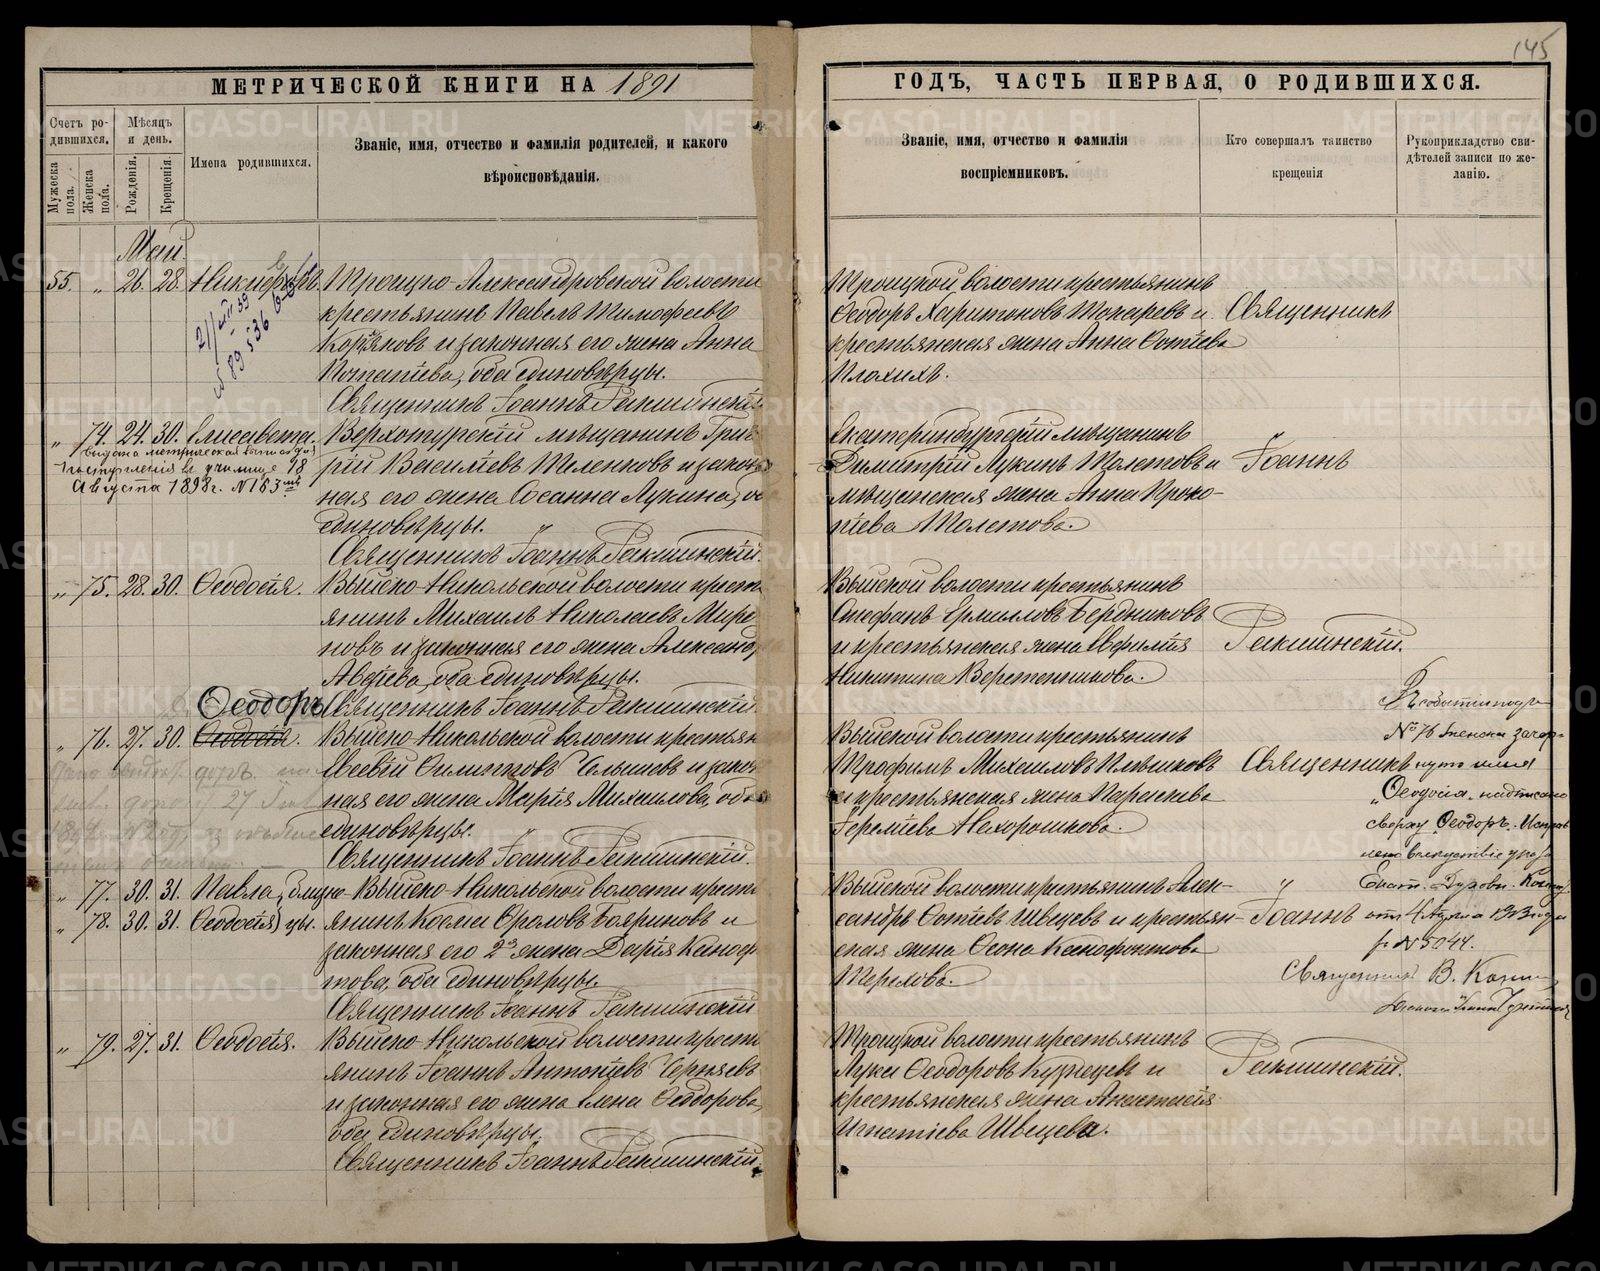 145
МЕТРИЧЕСКОЙ КНИГИ НА 1891
ГОДЪ, ЧАСТЬ ПЕРВАЯ, О РОДИВШИХСЯ.
Счетъ ро-
дившихся.
Мужеска пола.
Женска пола.
Мѣсяцъ
и день.
Рожденія.
Крещенія.
Имена родившихся.
Званіе, имя, отчество и фамилія родителей, и какого
вѣроисповѣданія.
Званіе, имя, отчество и фамилія
воспріемниковъ.
Кто совершалъ таинство
крещенія
Рукоприкладство сви-
дѣтелей записи по же-
ланію.
Май.
55. " 26. 28. Никифоръ. Троицко-Александровской волости
крестьянинъ Павелъ Тимофеевъ
и законная его жена Анна
Потапіева, оба единовѣрцы.
Священникъ Іоаннъ Ракшинскій.
Троицкой волости крестьянинъ
Ѳеодоръ Харитоновъ Токаревъ и
крестьянская жена Анна Фотіева
Плохихъ.
Священникъ
" 74. 24. 30. Елисавета. Верхотурскій мѣщанинъ Григ
рій Василіевъ Теленковъ и закон
ная его жена Сосанна Лукина, об
единовѣрцы.
Священникъ Іоаннъ Ракшинскій.
Выдана метрическая выпись для
поступленія въ училище 18
Августа 1898г. №183
Екатеринбургскій мѣщанинъ
Димитрій Лукинъ Молетовъ и
мѣщанская жена Анна Проко-
піева Молетова.
Іоаннъ
" 75. 28. 30. Ѳеодосія. Выйско-Никольской волости крест
янинъ Михаилъ Николаевъ Миро
новъ и законная его жена Александр
Авдіева, оба единовѣрцы.
Священникъ Іоаннъ Ракшинскій.
Выйской волости крестьянинъ
Стефанъ Ермиловъ Бердниковъ
и крестьянская жена Евфимія
Никитина Веретенникова.
Ракшинскій.
Ѳеодоръ
" 76. 27. 30. Ѳеодосія. Выйско-Никольской волости крестьян
Евсевій Филипповъ Челышевъ и закон
ная его жена Марія Михаилова, оба
единовѣрцы.
Священникъ Іоаннъ Ракшинскій.
Выйской волости крестьянинъ
Трофимъ Михаиловъ Плѣшковъ
и крестьянская жена Параскева
Іереміева Нехорошкова.
Священникъ
Въ событіи подъ
№ 76 женска зачер-
кнуто имя
"Ѳеодосія" надписано
сверху "Ѳеодоръ". Исправ
лено вслѣдствіе указа
Екат. Духовн. Конс
отъ 4 1913 года
за №5044.
Священникъ В.
" 77. 30. 31. Павла, близне- Выйско-Никольской волости крест
" 78. 30. 31. Ѳеодосія цы. янинъ Косма Фроловъ Бояриновъ и
законная его 2я жена Дарія Ксеноф
това, оба единовѣрцы.
Священникъ Іоаннъ Ракшинскій
Выйской волости крестьянинъ Алек-
сандръ Фотіевъ Швецовъ и крестьян-
ская жена Ксенофонтова
Терехова.
"
Іоаннъ
" 79. 27. 31. Ѳеодосія. Выйско-Никольской волости крест
янинъ Іоаннъ Антоніевъ Черняевъ
и законная его жена Елена Ѳеодорова,
оба единовѣрцы.
Священникъ Іоаннъ Ракшинскій.
Троицкой волости крестьянинъ
Лука Ѳеодоровъ Кузнецовъ и
крестьянская жена Анастасія
Игнатіева Швецова.
Ракшинскій.